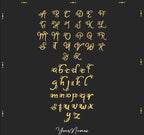 A B C D E F
G H I J K L
M N O P Q R
S T U V W X
Y Z
abcdef
ghijkl
mnopqr
stuvwx
yz
YourNames